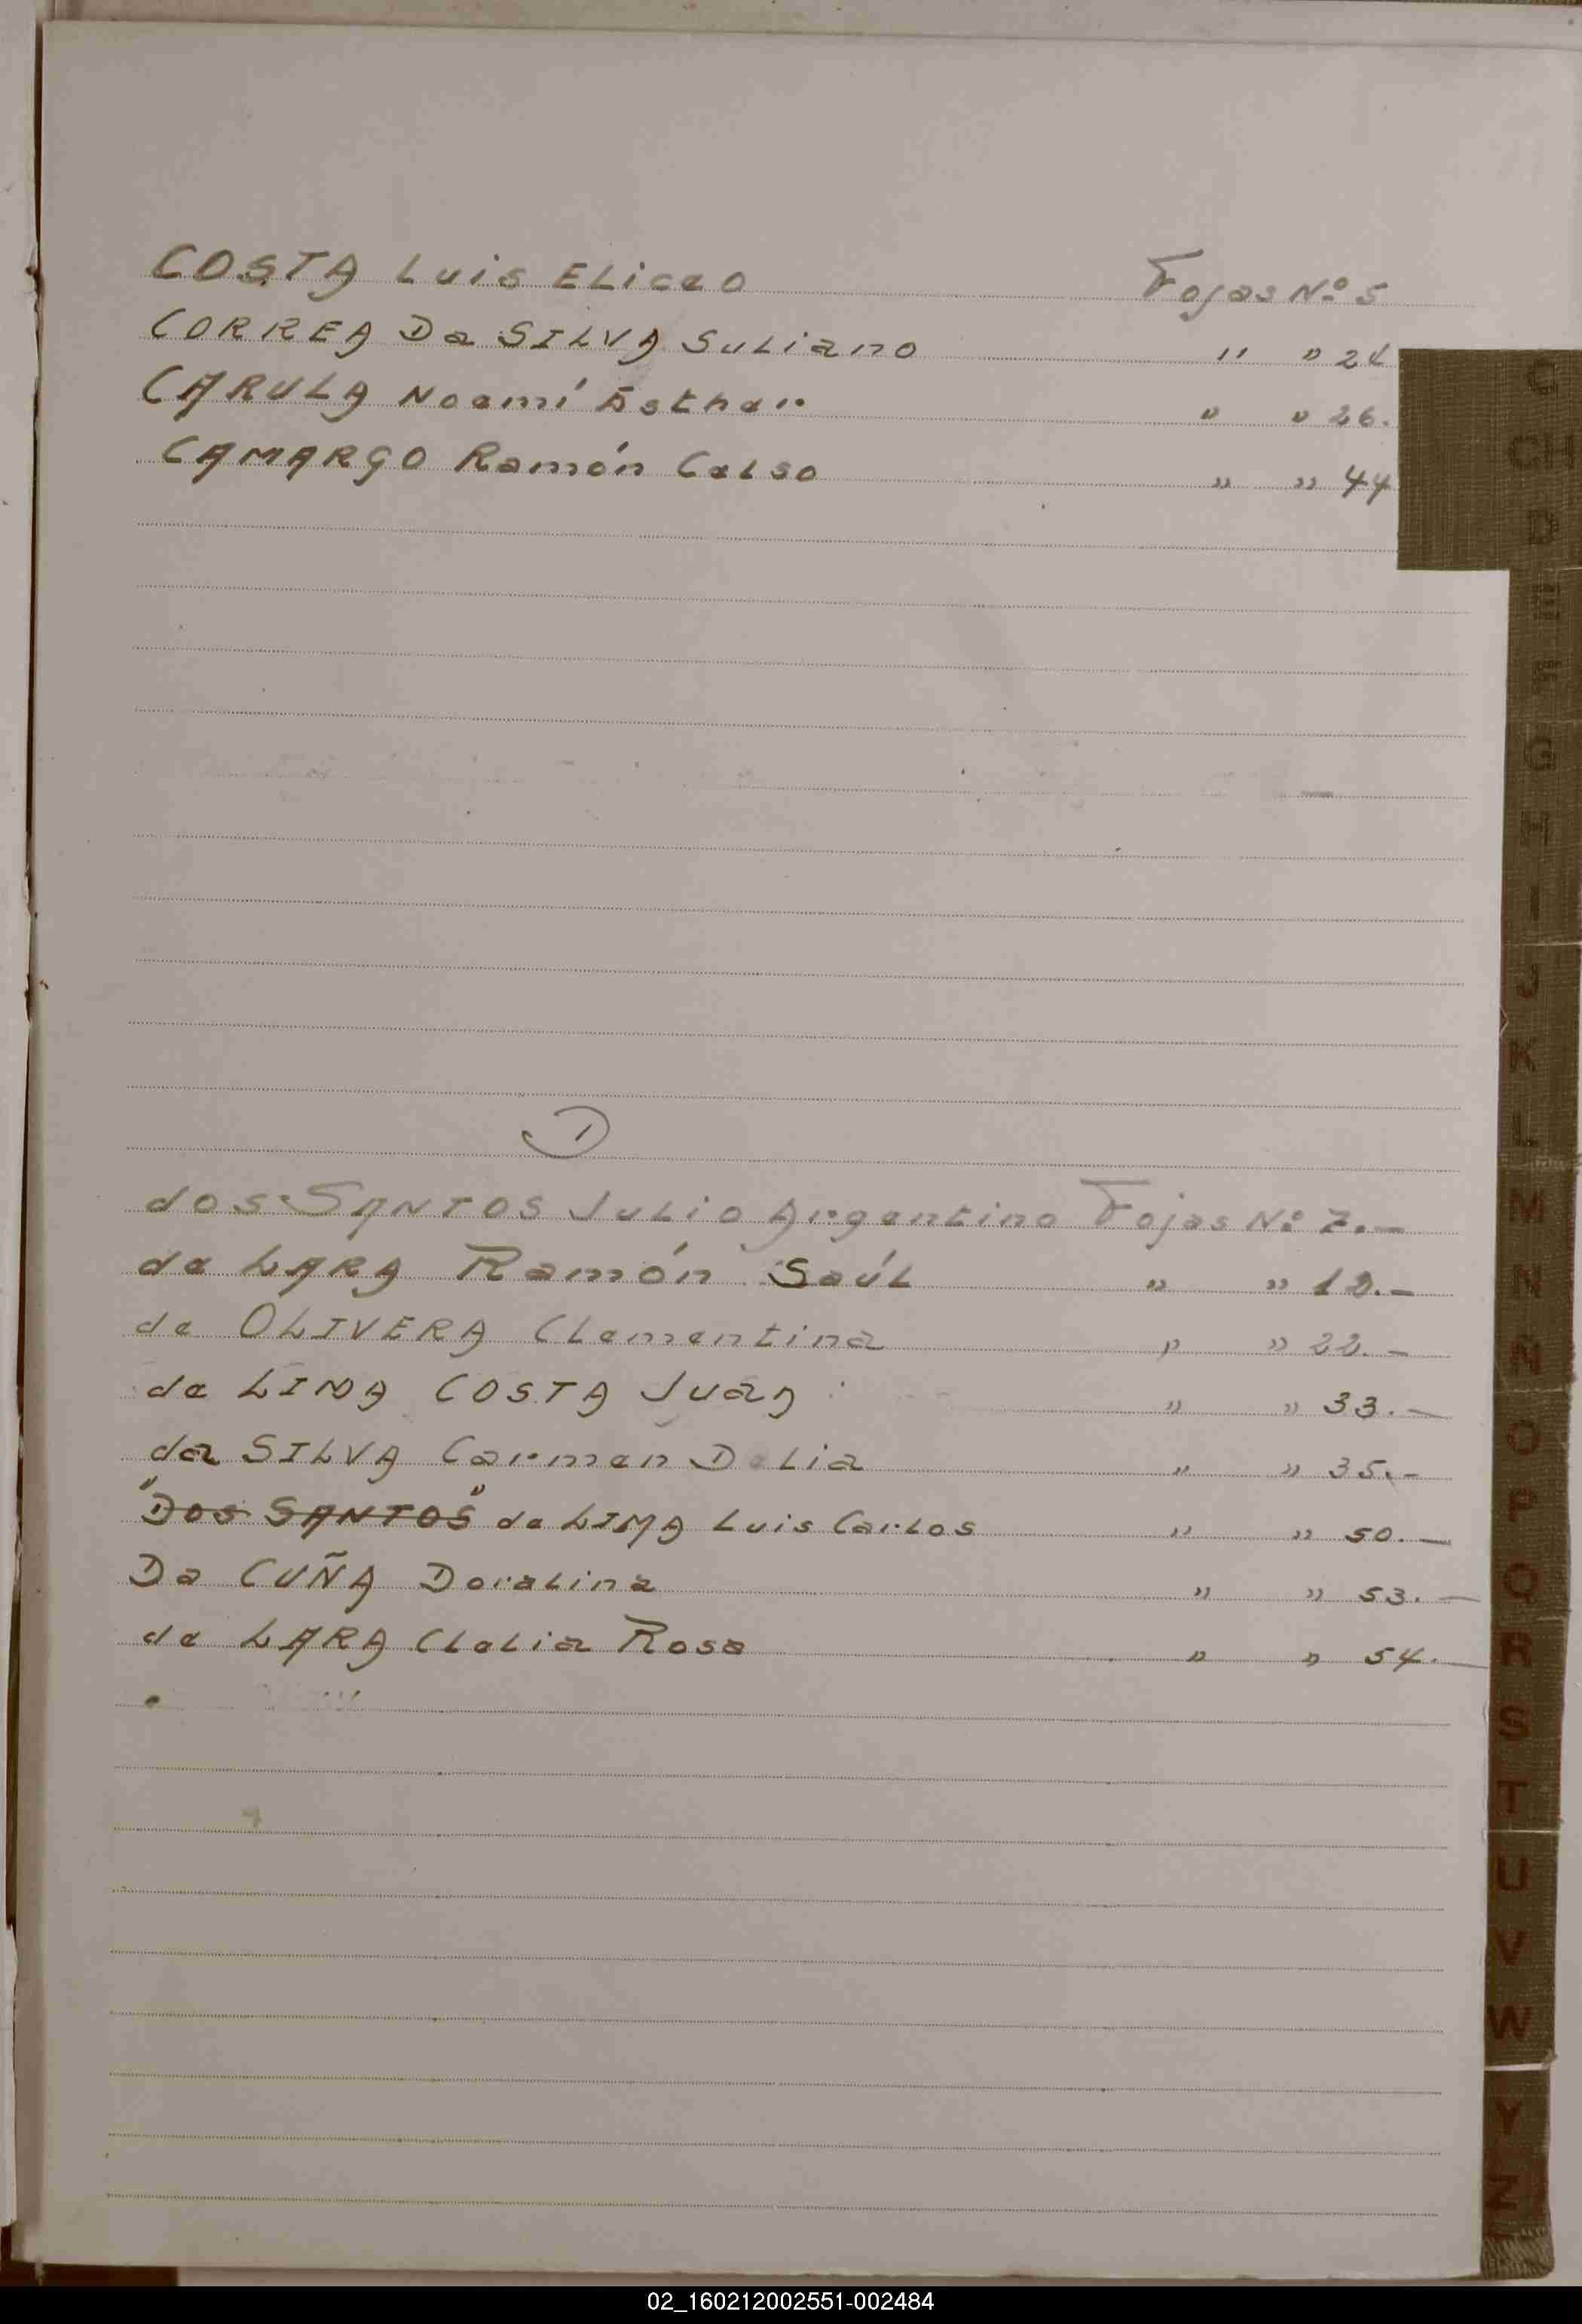 COSTA Luis ELiceo Fojas Nº 5
CORREA Da SILVA SuLiano " " 24
CARULA Noemí Esther " " 26.
CAMARGO Ramón CeLso " " 44
D
dos SANTOS JuLio Argentino Fojas Nº 7.-
de LARA Ramón SaúL " " 12.-
de OLIVERA CLementina " " 22.-
de LIMA COSTA Juan " " 33.-
da SILVA Carmen DeLia " " 35.-
"DOS SANTOS" de LIMA Luis CarLos " " 50.-
Da CUÑA DoraLina " " 53.-
de LARA CLeLia Rosa " " 54.-
C
CH
D
E
F
G
H
I
J
K
L
M
N
Ñ
O
P
Q
R
S
T
U
V
W
Y
Z
02_160212002551-002484